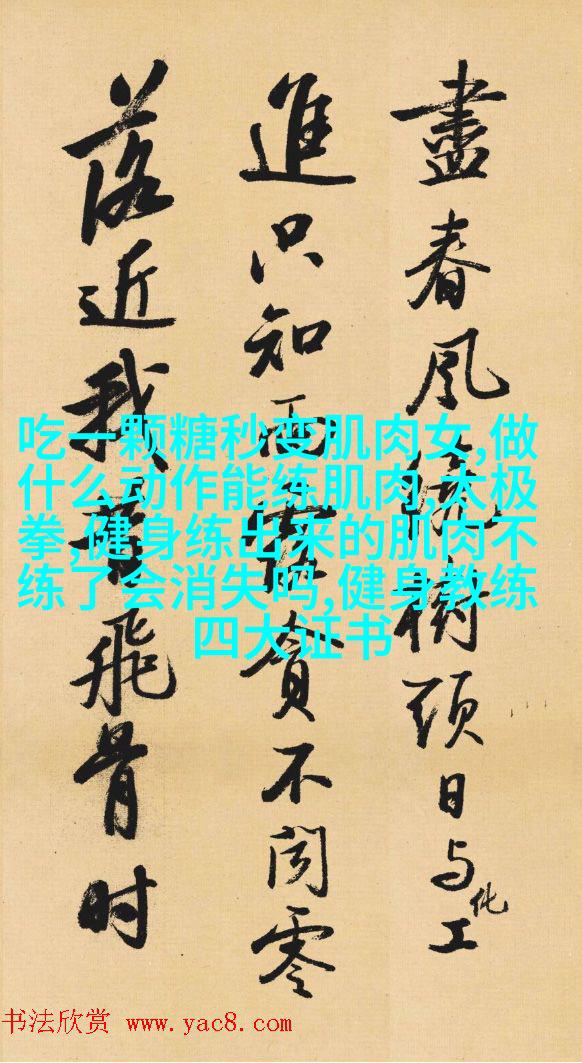 盡春風繞樹頭日与化工
進只知雨露貪不聞零
落近我昔飛骨时
吃一颗糖秒变肌肉女,做
什么动作能练肌肉,太极
拳,健身练出来的肌肉不
练了会消失吗,健身教练
四大证书
书法欣赏 www.yac8.com